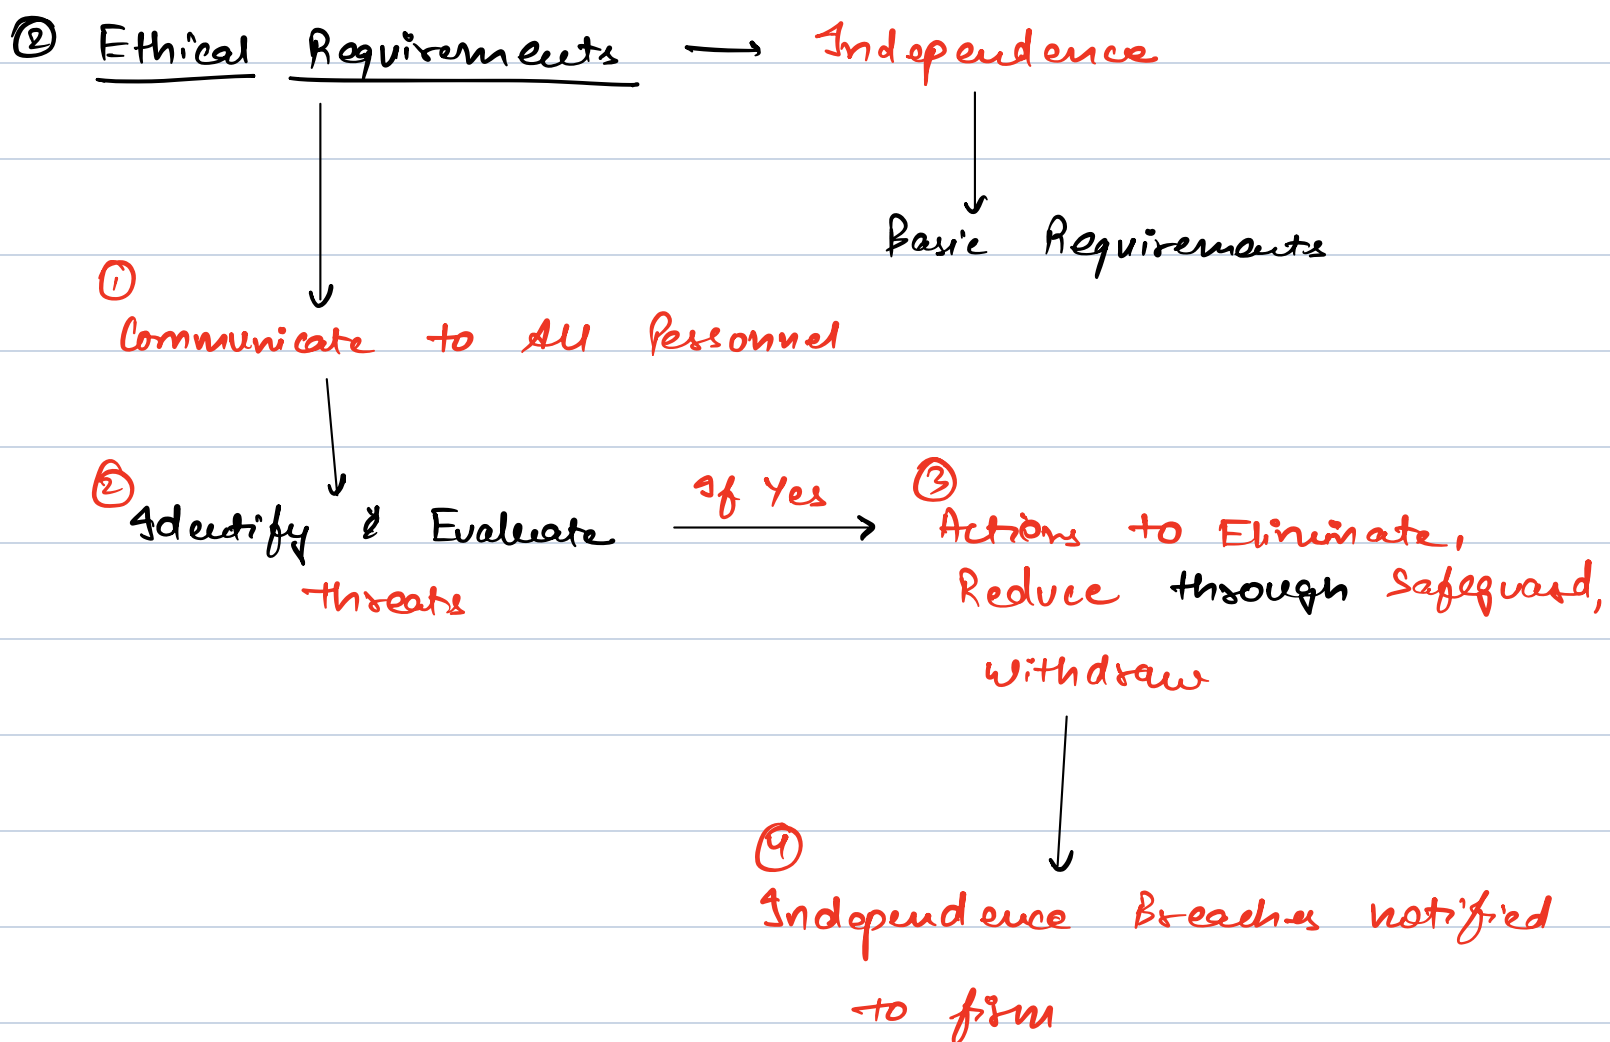 ② Ethical Requirements → Independence
Basic Requirements
①
Communicate to All Personnel
②
Identify & Evaluate
threats
If Yes
③
Actions to Eliminate,
Reduce through Safeguard,
withdraw
④
Independence Breaches notified
to firm